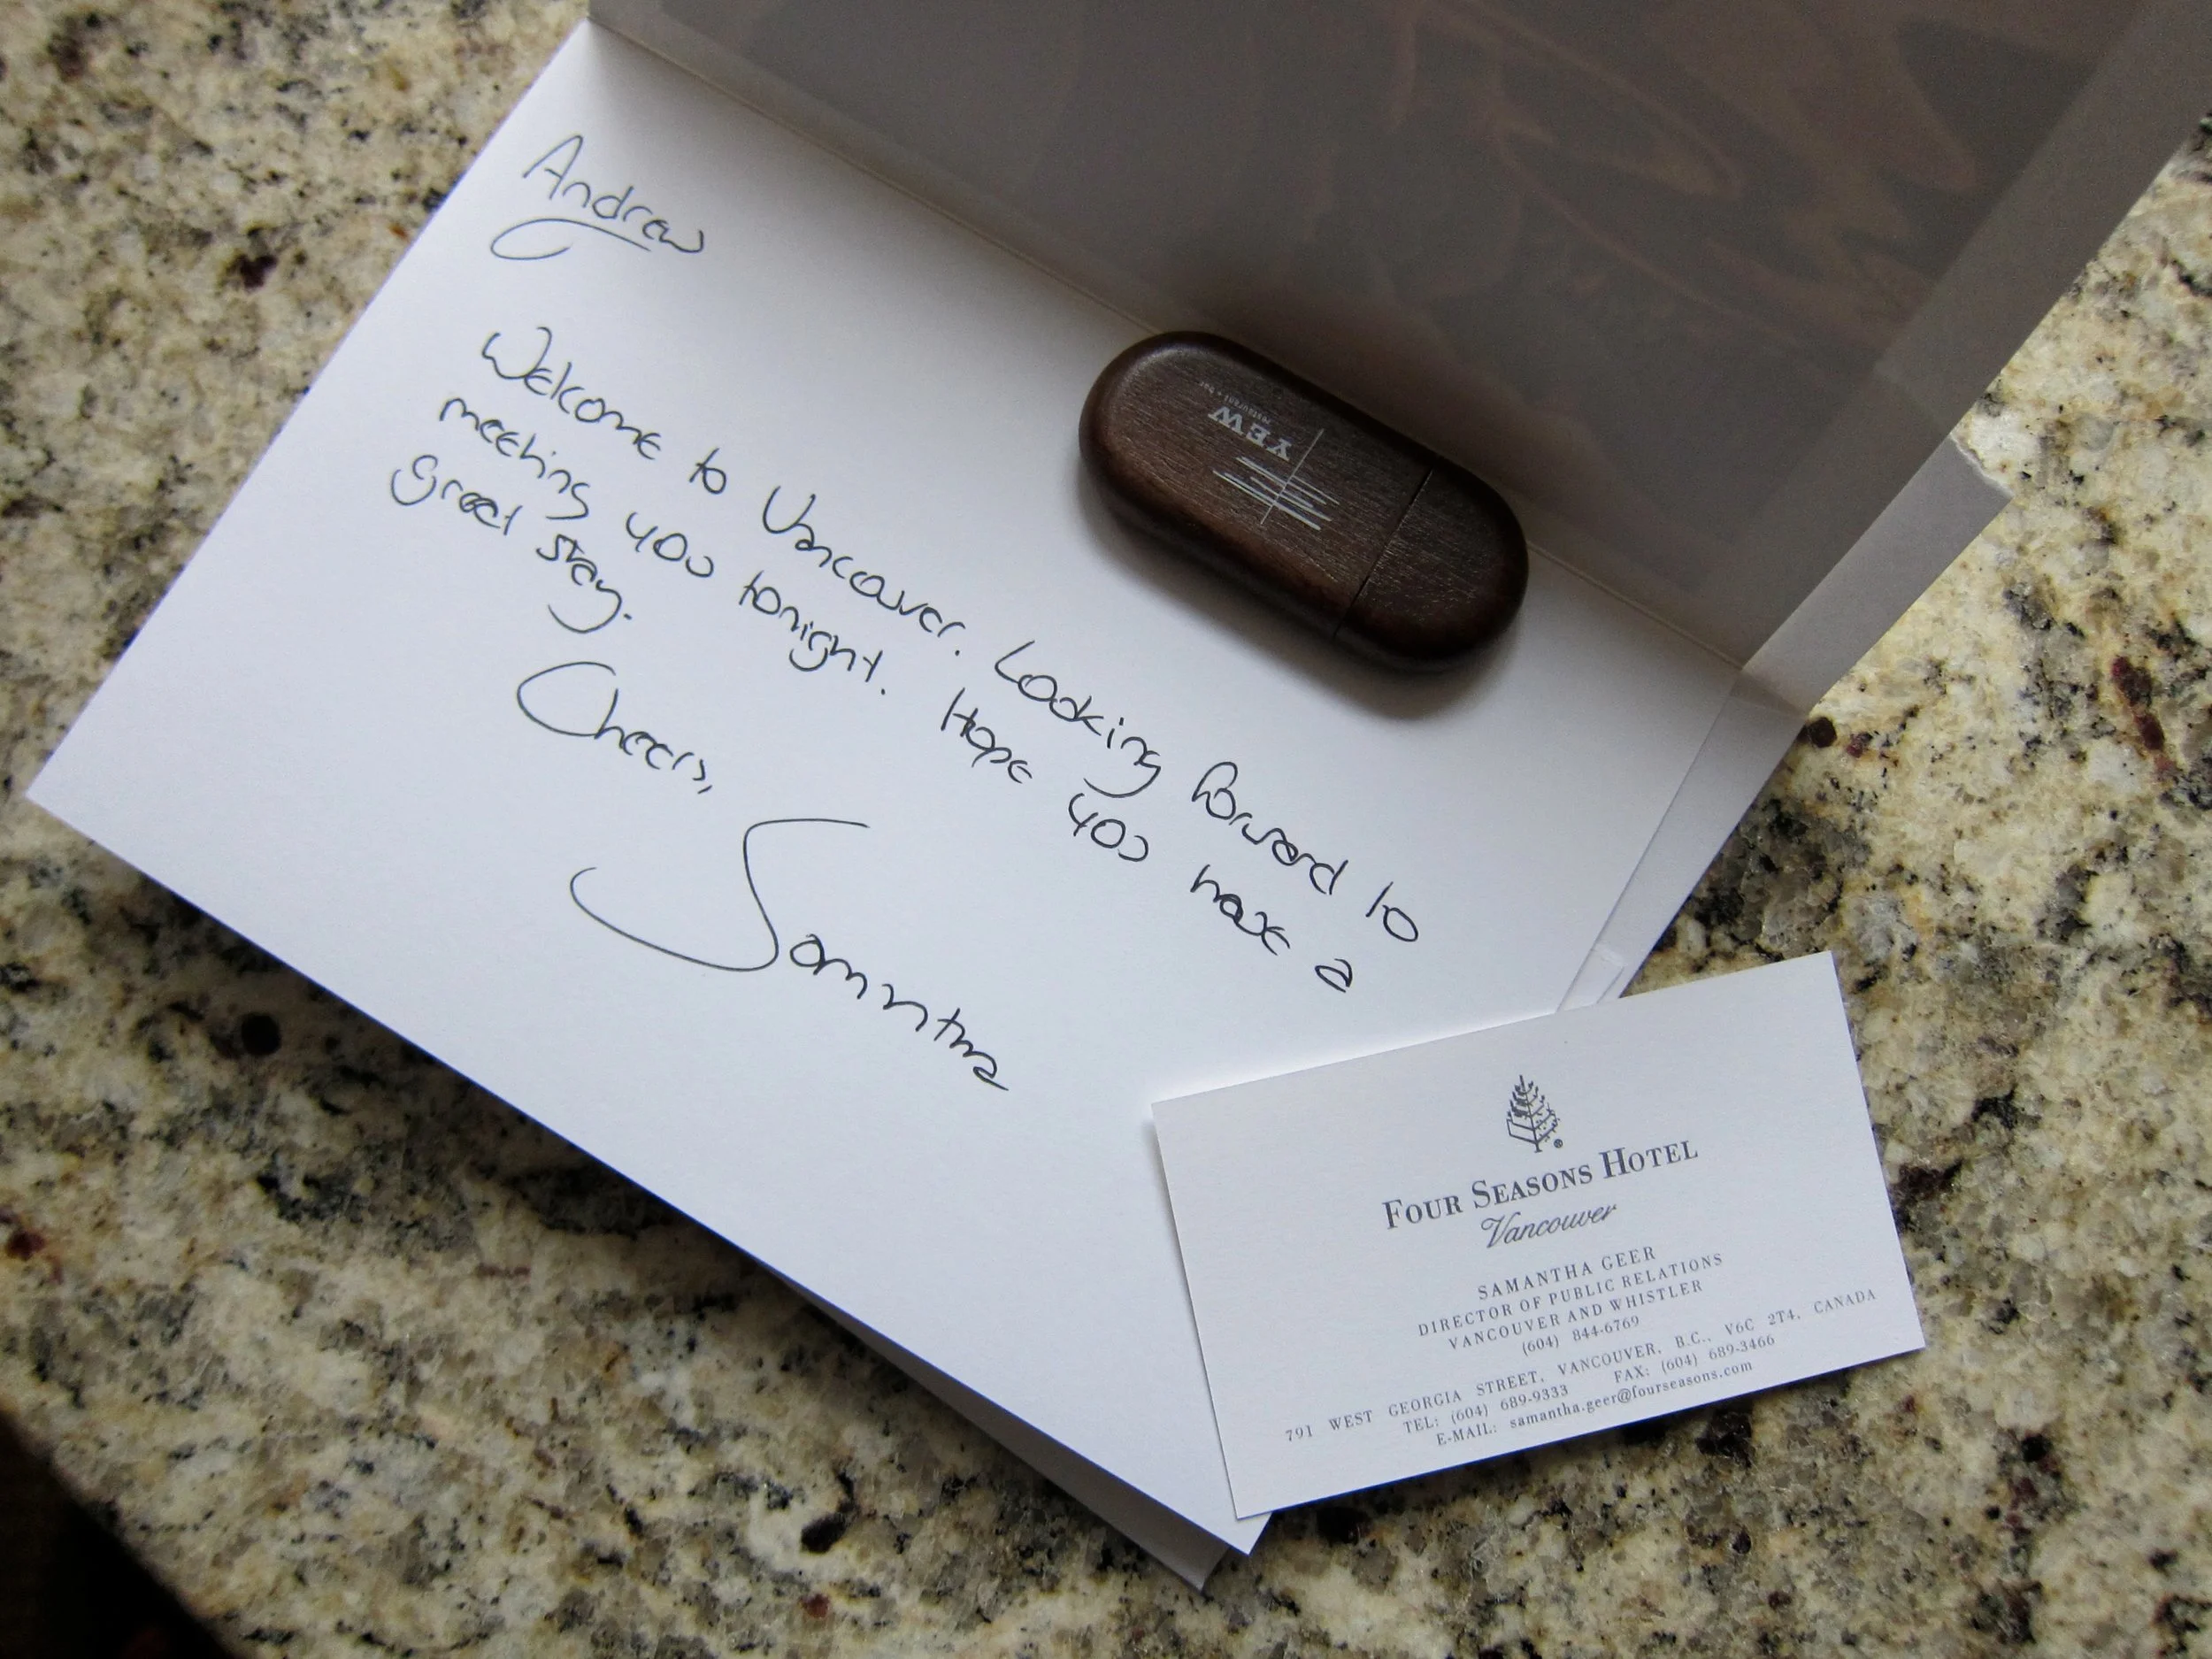 Andrew
Welcome to Vancouver. Looking forward to
meeting you tonight. Hope you have a
great stay.
Cheers,
Samantha
YEW
restaurant + bar
FOUR SEASONS HOTEL
Vancouver
SAMANTHA GEER
DIRECTOR OF PUBLIC RELATIONS
VANCOUVER AND WHISTLER
(604) 844-6769
791 WEST GEORGIA STREET, VANCOUVER, B.C., V6C 2T4, CANADA
TEL: (604) 689-9333 FAX: (604) 689-3466
E-MAIL: samantha.geer@fourseasons.com